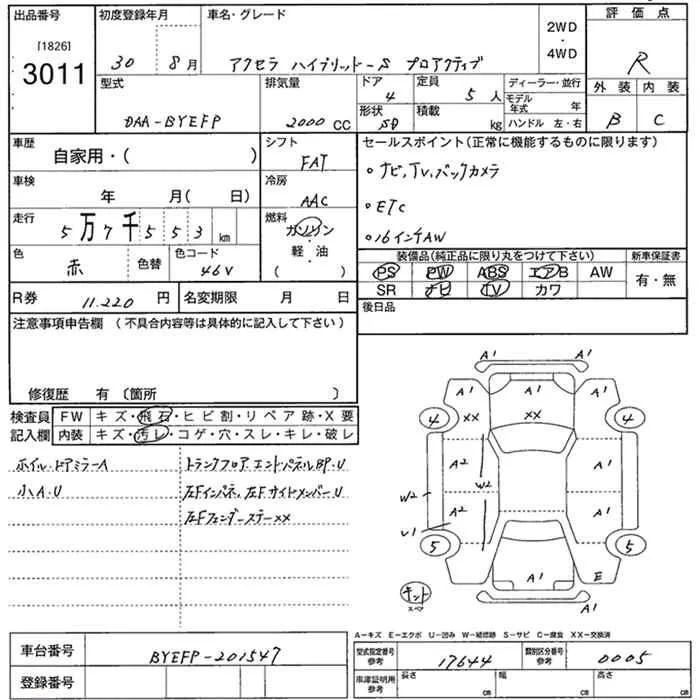 出品番号 初度登録年月 車名・グレード 評価点
[1826]
3011
30 8月 アクセラ ハイブリッド-S プロアクティブ 2WD・4WD R
型式 排気量 ドア 定員 ディーラー・並行 外装 内装
DAA-BYEFP 2000 CC 4 5人 モデル年式 年 B C
形状 積載 ハンドル 左・右
SD kg
車歴 シフト セールスポイント(正常に機能するものに限ります)
自家用・( ) FAT
・ナビ,TV,バックカメラ
車検 冷房
年 月(日) AAC
・ETC
走行 燃料
5万7千553km ガソリン・軽油( )
・16インチAW
色 色替 色コード
赤 46V
装備品(純正品に限り丸をつけて下さい) 新車保証書
PS PW ABS エアB AW 有・無
SR ナビ TV カワ
R券 11.220 円 名変期限 月 日
後日品
注意事項申告欄(不具合内容等は具体的に記入して下さい)
修復歴 有〔箇所 〕
検査員記入欄 FW キズ・飛石・ヒビ割・リペア跡・X要
内装 キズ・汚レ・コゲ・穴・スレ・キレ・破レ
ホイル・ドアミラーA トランクフロア,エンドパネルBP・U
小A・U 左Fインパネ,左FサイドメンバーU
左Fフェンダーステー××
A1 A1
A1 A1 A1
4 ×× ×× 4
A2 A1
W2 W2
A2 A1
U1
5 5
A1 E
キット
スペア
A1 A1
A-キズ E-エクボ U-凹み W-補修跡 S-サビ C-腐食 XX-交換済
車台番号 BYEFP-201547
型式指定番号 参考 17644 類別区分番号 参考 0005
登録番号
車庫証明用 参考 長さ cm 幅 cm 高さ cm